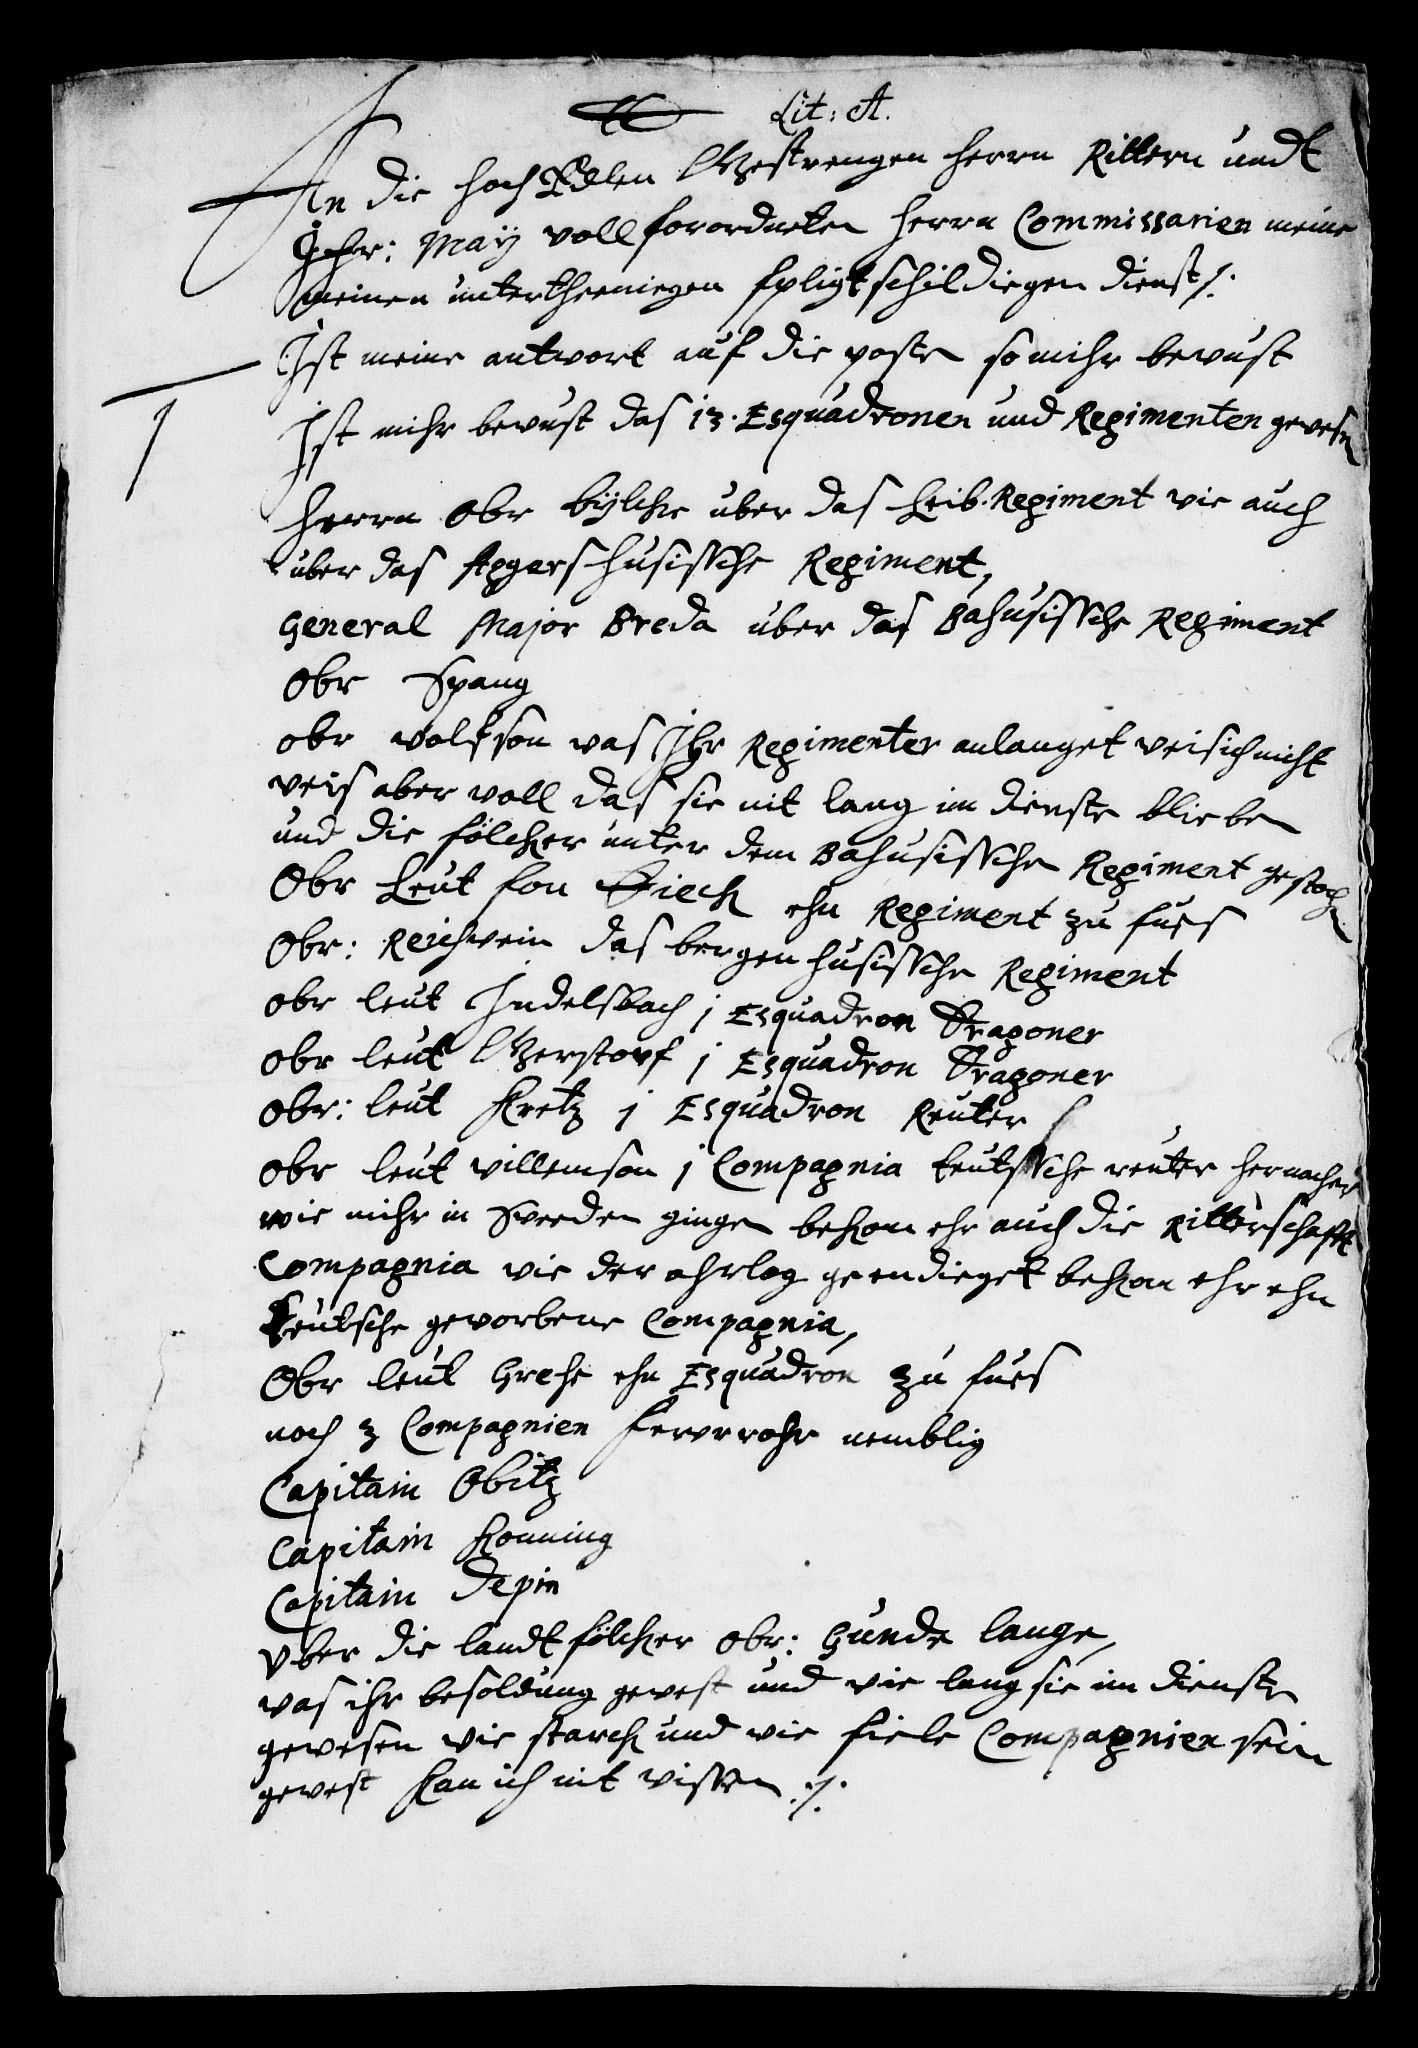 Lit: A.
An die hoch Edlen Gestrengen herrn Rittern undt
Ihr: May voll forordneten herrn Commissarien meine
meinen untertheeniegen schildiegen dienst ./.
Ist meine antwort auf die poste so mihr bewust
1
Ist mihr bewust das 13. Esquadronen und Regimenten gewesn
herrn Obr bÿlche uber das Leib. Regiment wie auch
uber das Aggershusissche Regiment,
General Major Breda uber das Bahusissche Regiment
Obr Spang
obr wolfson was Ihr Regimenter anlanget weis ich nicht
weis aber woll das sie nit lang im dienste blieben
und die fölcker unter dem Bahusissche Regiment gestochn
Obr Leut fon Sieck ehn Regiment zu fues
Obr: Reichwein das bergenhusissche Regiment
obr leut Indelsbach 1 Esquadron Dragoner
obr leut Gerstorf 1 Esquadron Dragoner
Obr: leut Kretz 1 Esquadron Reuter
obr leut willemson 1 Compagnia teutssche reuter hernacher
wie mihr in Sweeden gingen bekom ehr auch die Ritterschafft
Compagnia wie der ohrlog geendieget bekom ehr ehn
teutsche geworbene Compagnia,
Obr leut Grehe ehn Esquadron zu fues
noch 3 Compagnien ferurrohr nemblig
Capitain Obitz
Capitain Konning
Capitain depin
Uber die landtfölcker Obr: Gunde lange,
was ihr besoldung gewest und wie lang sie im dienste
gewesen wie starck und wie fiele Compagnien sein
gewest kan ich nit wissen ./.